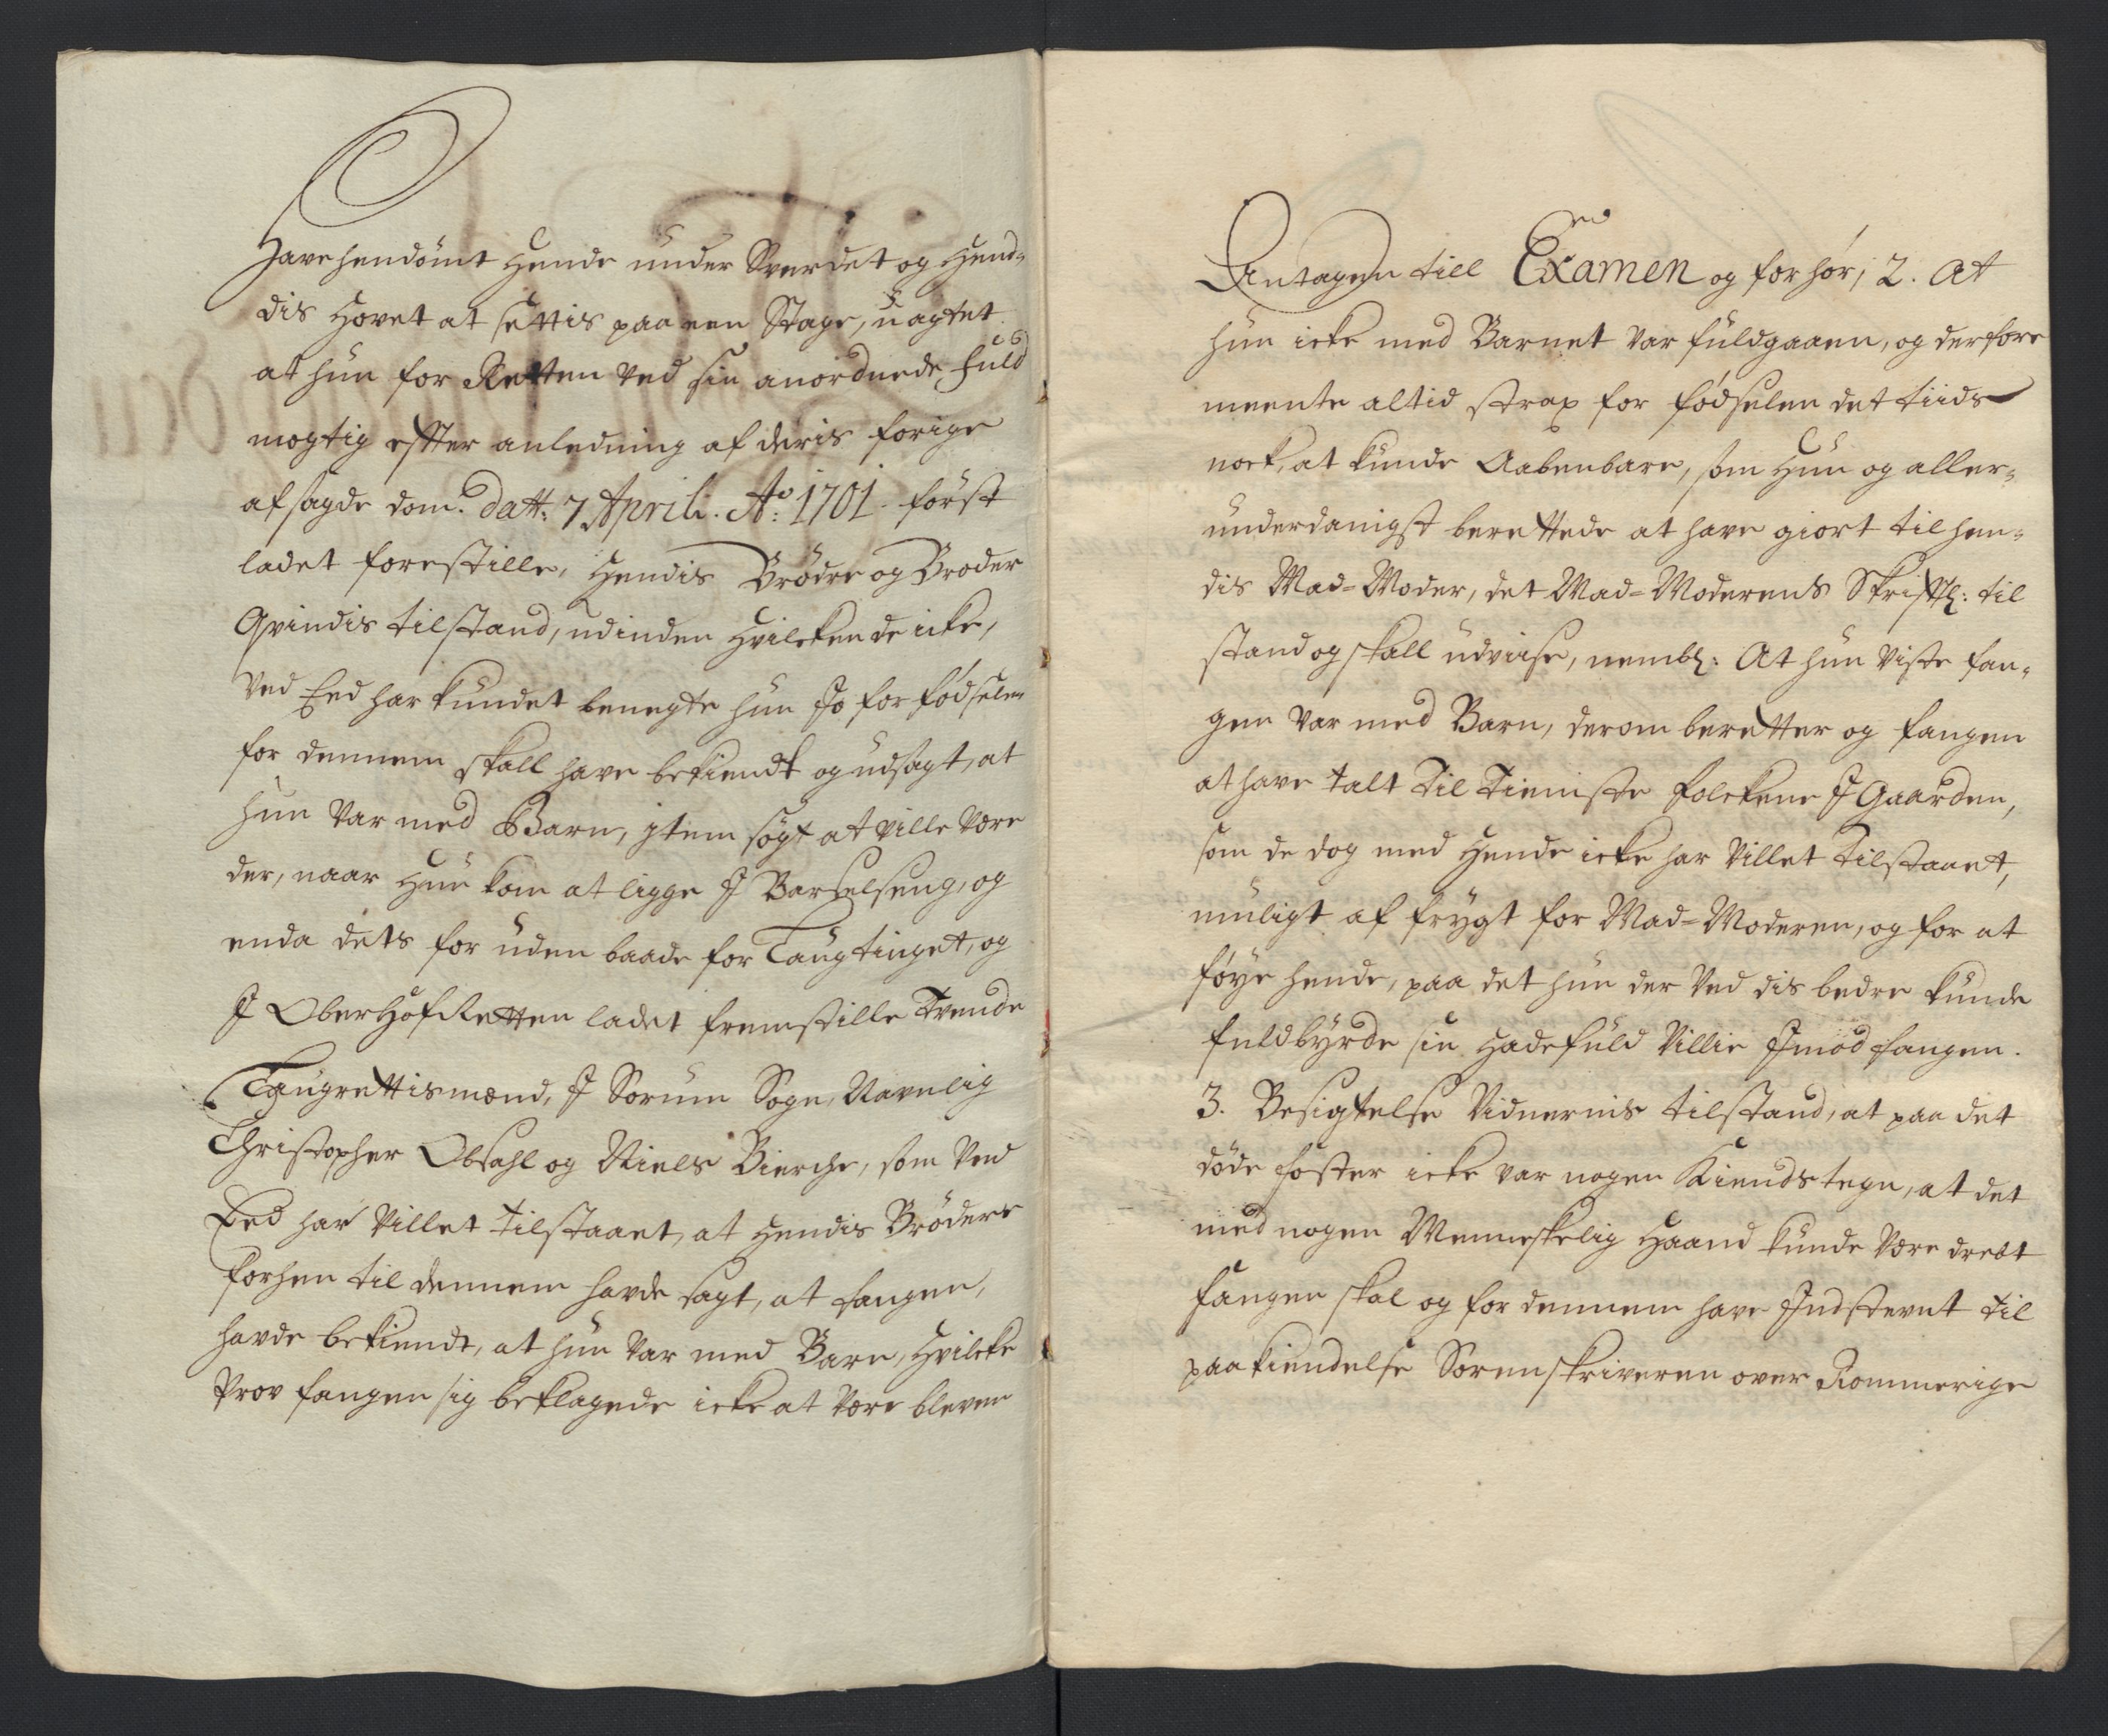 Have hendömt Hende under Sverdet og Hen-
dis Hovet at settis paa een Stage, uagtet
at hun for Retten ved sin anordnede Fuld
mogtig efter anledning af deris forige
afsagde dom. datt: 7 April. Ao: 1701. först
ladet forestille, Hendis Brödre og Broder
Qvindis tilstand, udinden Hvilcken de icke,
Ved Eed har kundet benegte hun Jo for födselen
for dennem skall have bekiendt og udsagt, at
hun Var med Barn, jtem sögt at ville Være
der, naar Hun kom at ligge J Barselseng, og
enda dets for uden baade for Laugtinget, og
J OberHofRetten ladet fremstille Trende
Laugrettismænd, J Sorum Sogn, Navnlig
Christopher Obsahl og Niels Bierche, som Ved
Eed har Villet tilstaaet, at Hendis Brödere
forhen til dennem havde sagt, at fangen,
havde bekiendt, at hun Var med Barn, Hvilcke
Prov fangen sig beklagede icke at Være bleven
Antagen till Examen og forhör, 2. At
hun icke med Barnet Var fuldgaaen, og derfore
meente altid strax for födselen det tiids
nock, at kunde Aabenbare, som Hun og aller-
underdanigst berettede at have giort til hen-
dis Mad-Moder, det Mad-Moderens Skriftl: til
stand og skall udviise, nembl: At hun Viste fan-
gen Var med Barn, derom beretter og fangen
at have talt Til Tienniste folckene J Gaarden,
som de dog med Hende icke har Villet tilstaaet,
muligt af frygt for Mad-Moderen, og for at
föye hende, paa det hun der Ved dis bedre kunde
fuldbyrde sin Hadefuld Villie Jmod fangen.
3. Besigtelse Vidnernis tilstand, at paa det
döde foster icke var nogen Kiendstegn, at det
med nogen Menneskelig Haand kunde Være drebt
fangen skal og for dennem have Jndstevnt til
paakiendelse Sorenskriveren over Rommerige